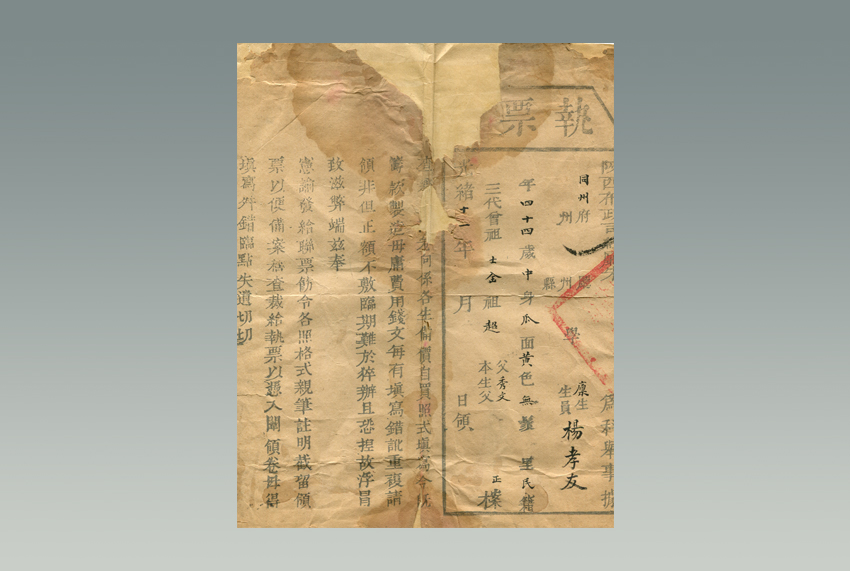 執票
陝西布政司
同州府 州 縣 學 廩生 生員 楊孝友
年四十四歲中身瓜面黃色無鬚 里民籍
三代曾祖士金祖超父秀文本生父 正
光緒十一年 月 日領
各生備價自買照式填寫今
製造毋庸費用錢文每有填寫錯訛重複請
領非但正額不敷臨期難於猝辦且恐捏故浮冒
致滋弊端茲奉
憲諭發給聯票飭令各照格式親筆註明截留領
票以便備案 查裁給執票以憑入闈領卷毋得
填寫舛錯臨點失遺切切